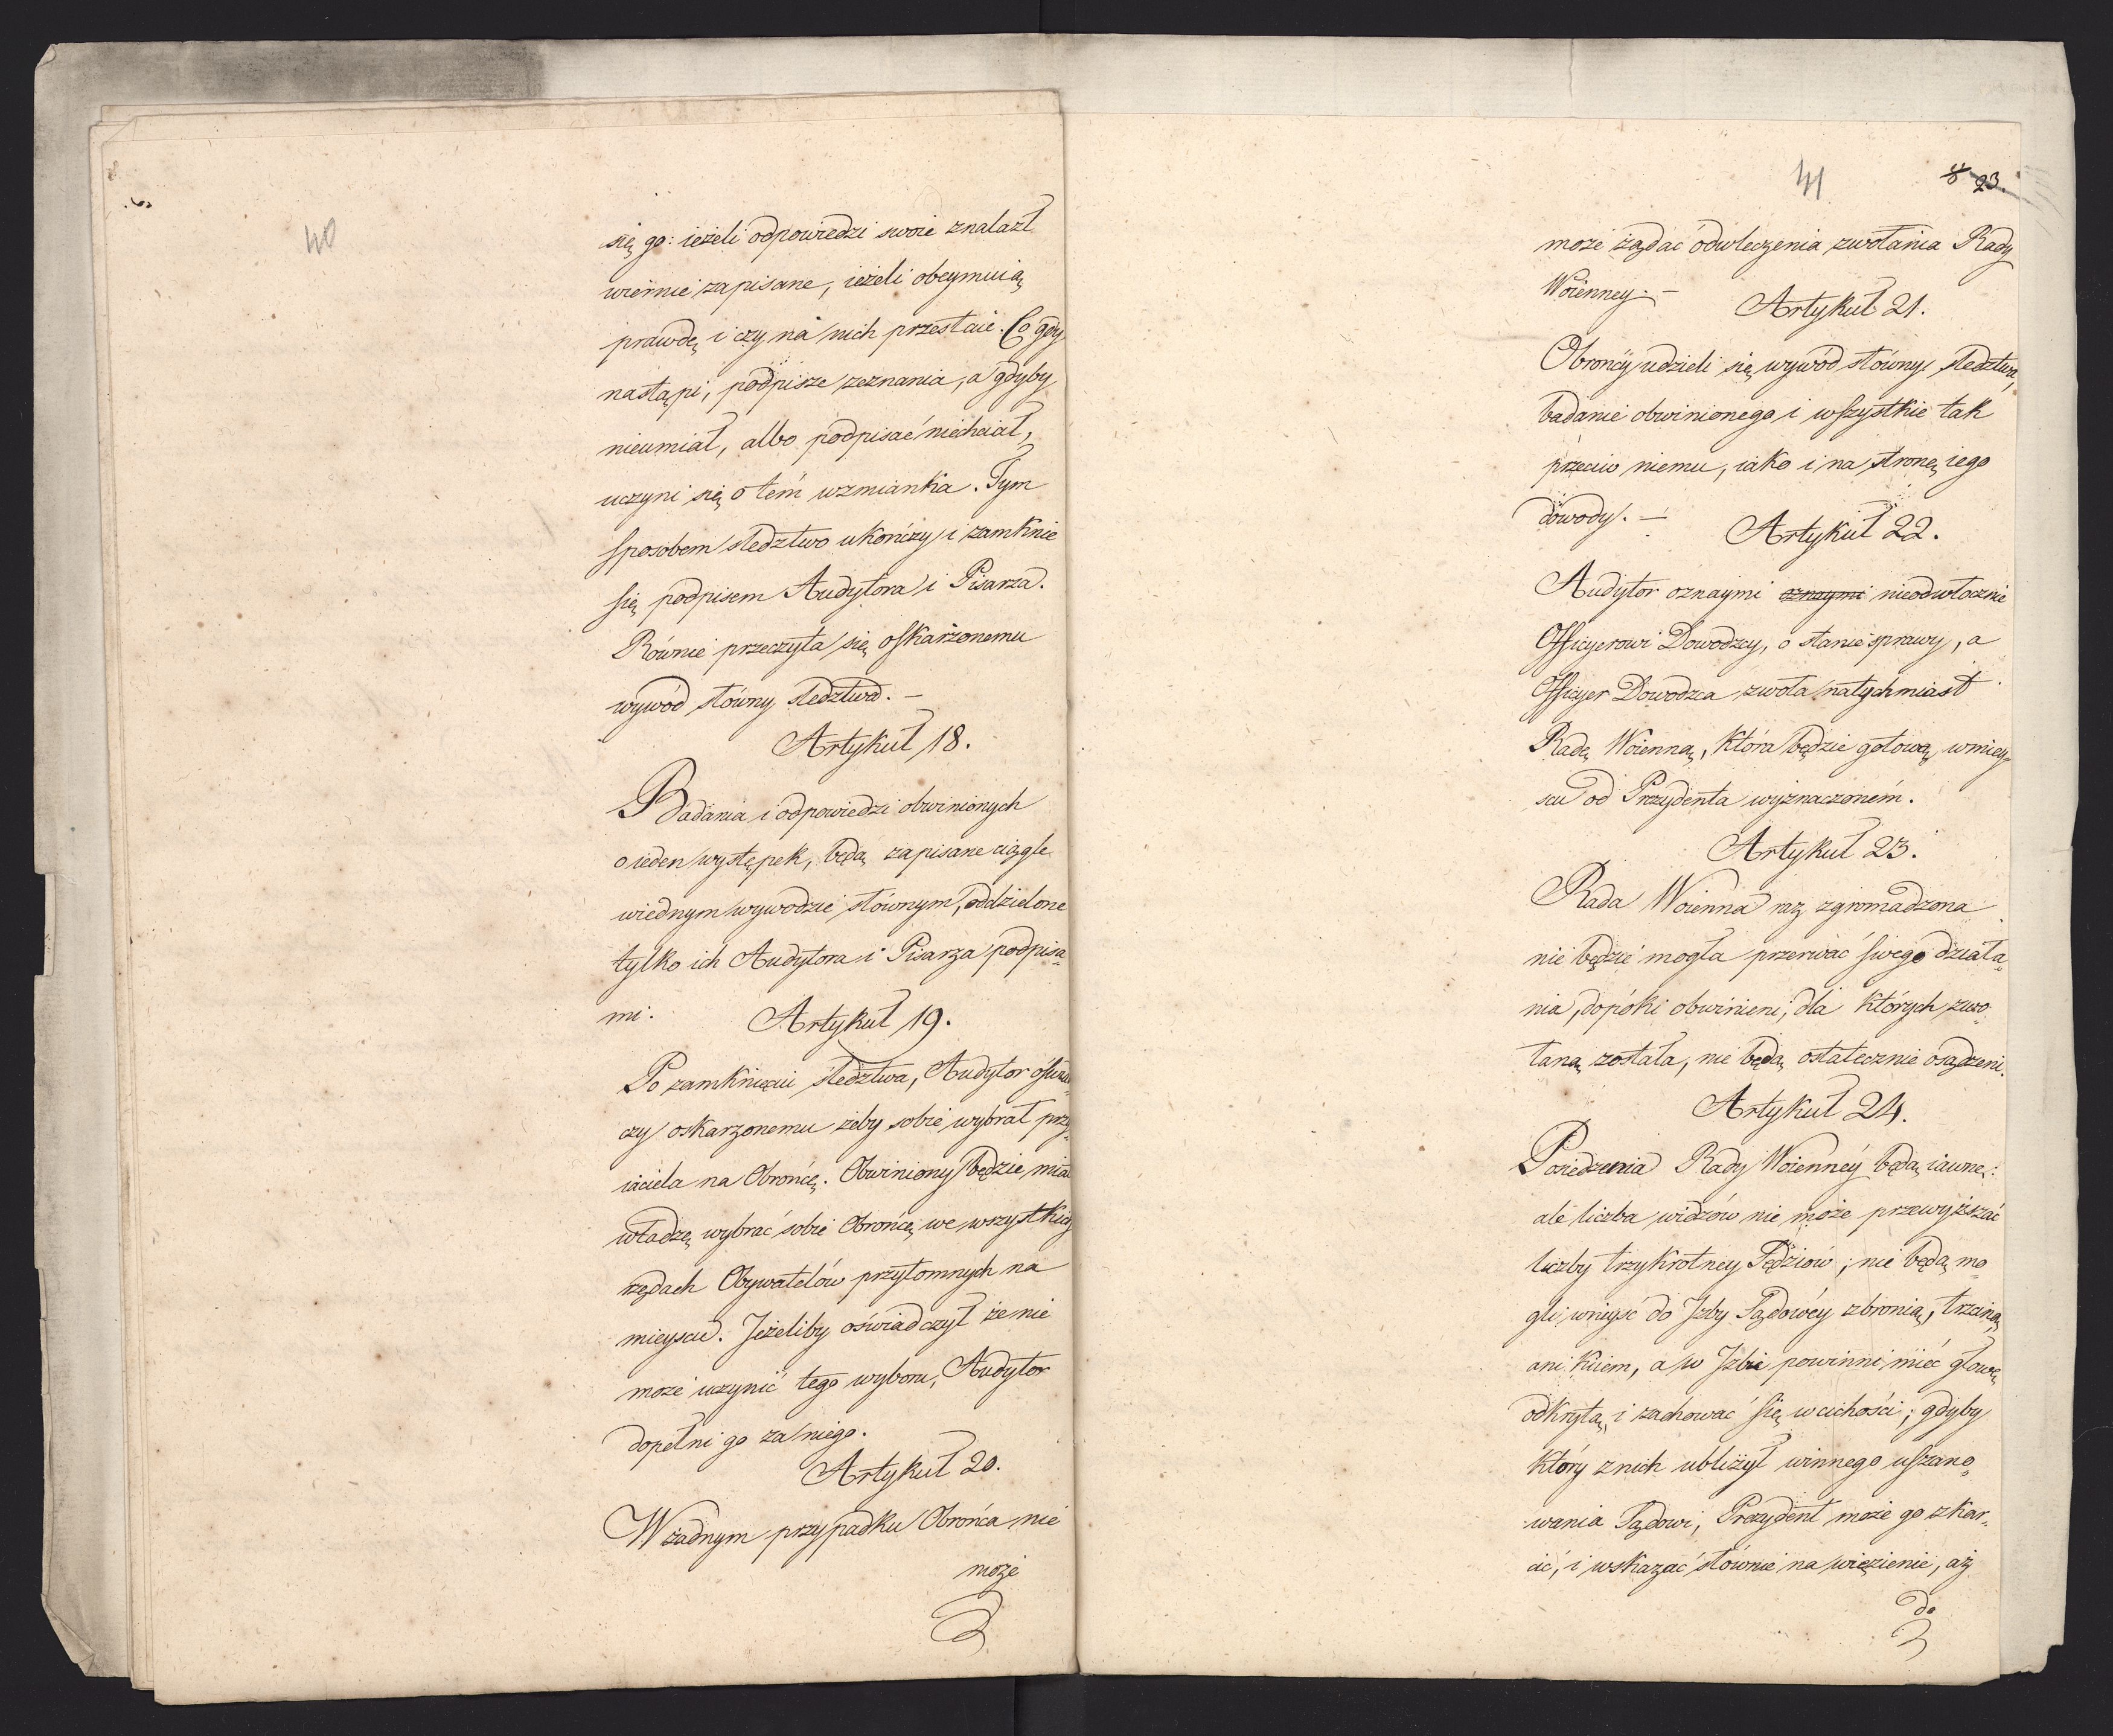 40
się go: ieżeli odpowiedzi swoie znalazł
wiernie zapisane, ieżeli obeymuią
prawdę i czy na nich przestaie. Co gdy
nastąpi, podpisze zeznania, a gdyby
nieumiał, albo podpisać niechciał,
uczyni się o tem wzmianka. Tym
sposobem śledztwo ukończy i zamknie
się podpisem Audytora i Pisarza.
Równie przeczyta się oskarżonemu
wywód słowny śledztwa. –
Artykuł 18.
Badania i odpowiedzi obwinionych
o ieden występek, będą zapisane ciągle
wiednym wywodzie słownym, oddzielone
tylko ich Audytora i Pisarza podpisa„
mi.
Artykuł 19.
Po zamknięciu śledztwa, Audytor
czy oskarzonemu żeby sobie wybrał przy„
iaciela na Obrońcę. Obwiniony będzie miał
władzę wybrać sobie Obrońcę we wszystkich
rzędach Obywatelów przytomnych na
mieyscu. Jeżeliby oświadczył że nie
może uczynić tego wyboru, Audytor
dopełni go za niego.
Artykuł 20.
W żadnym przypadku Obrońca nie
może
41
23.
może żądać odwleczenia zwołania Rady
Woienney. –
Artykuł 21.
Obrońcy udzieli się wywód słowny śledztwa,
badanie obwinionego i wszystkie tak
przeciw niemu, iako i na stronę iego
dowody. –
Artykuł 22.
Audytor oznaymi oznaymi nieodwłocznie
Officyerowi Dowodzcy, o stanie sprawy, a
Officyer Dowodzca zwoła natychmiast
Radę Woienną, która będzie gotową w miey„
scu od Prezydenta wyznaczonem.
Artykuł 23.
Rada Woienna raz zgromadzona
nie będzie mogła przerwać swego działa„
nia, dopóki obwinieni, dla których zwo
łaną została, nie będą ostatecznie osądzeni.
Artykuł 24.
Posiedzenia Rady Woienney będą iawne:
ale liczba widzów nie może przewyższać
liczby trzykrotney Sędziów; nie będą mo„
gli wniyść do Jzby Sądowey z bronią, trzciną,
ani kiiem, a w Jzbie powinni mieć głowę
odkrytą, i zachować się w cichości; gdyby
który z nich ubliżył winnego uszano„
wania Sądowi, Prezydent może go zkar„
cić, i wskazać słownie na więzienie, aż
do